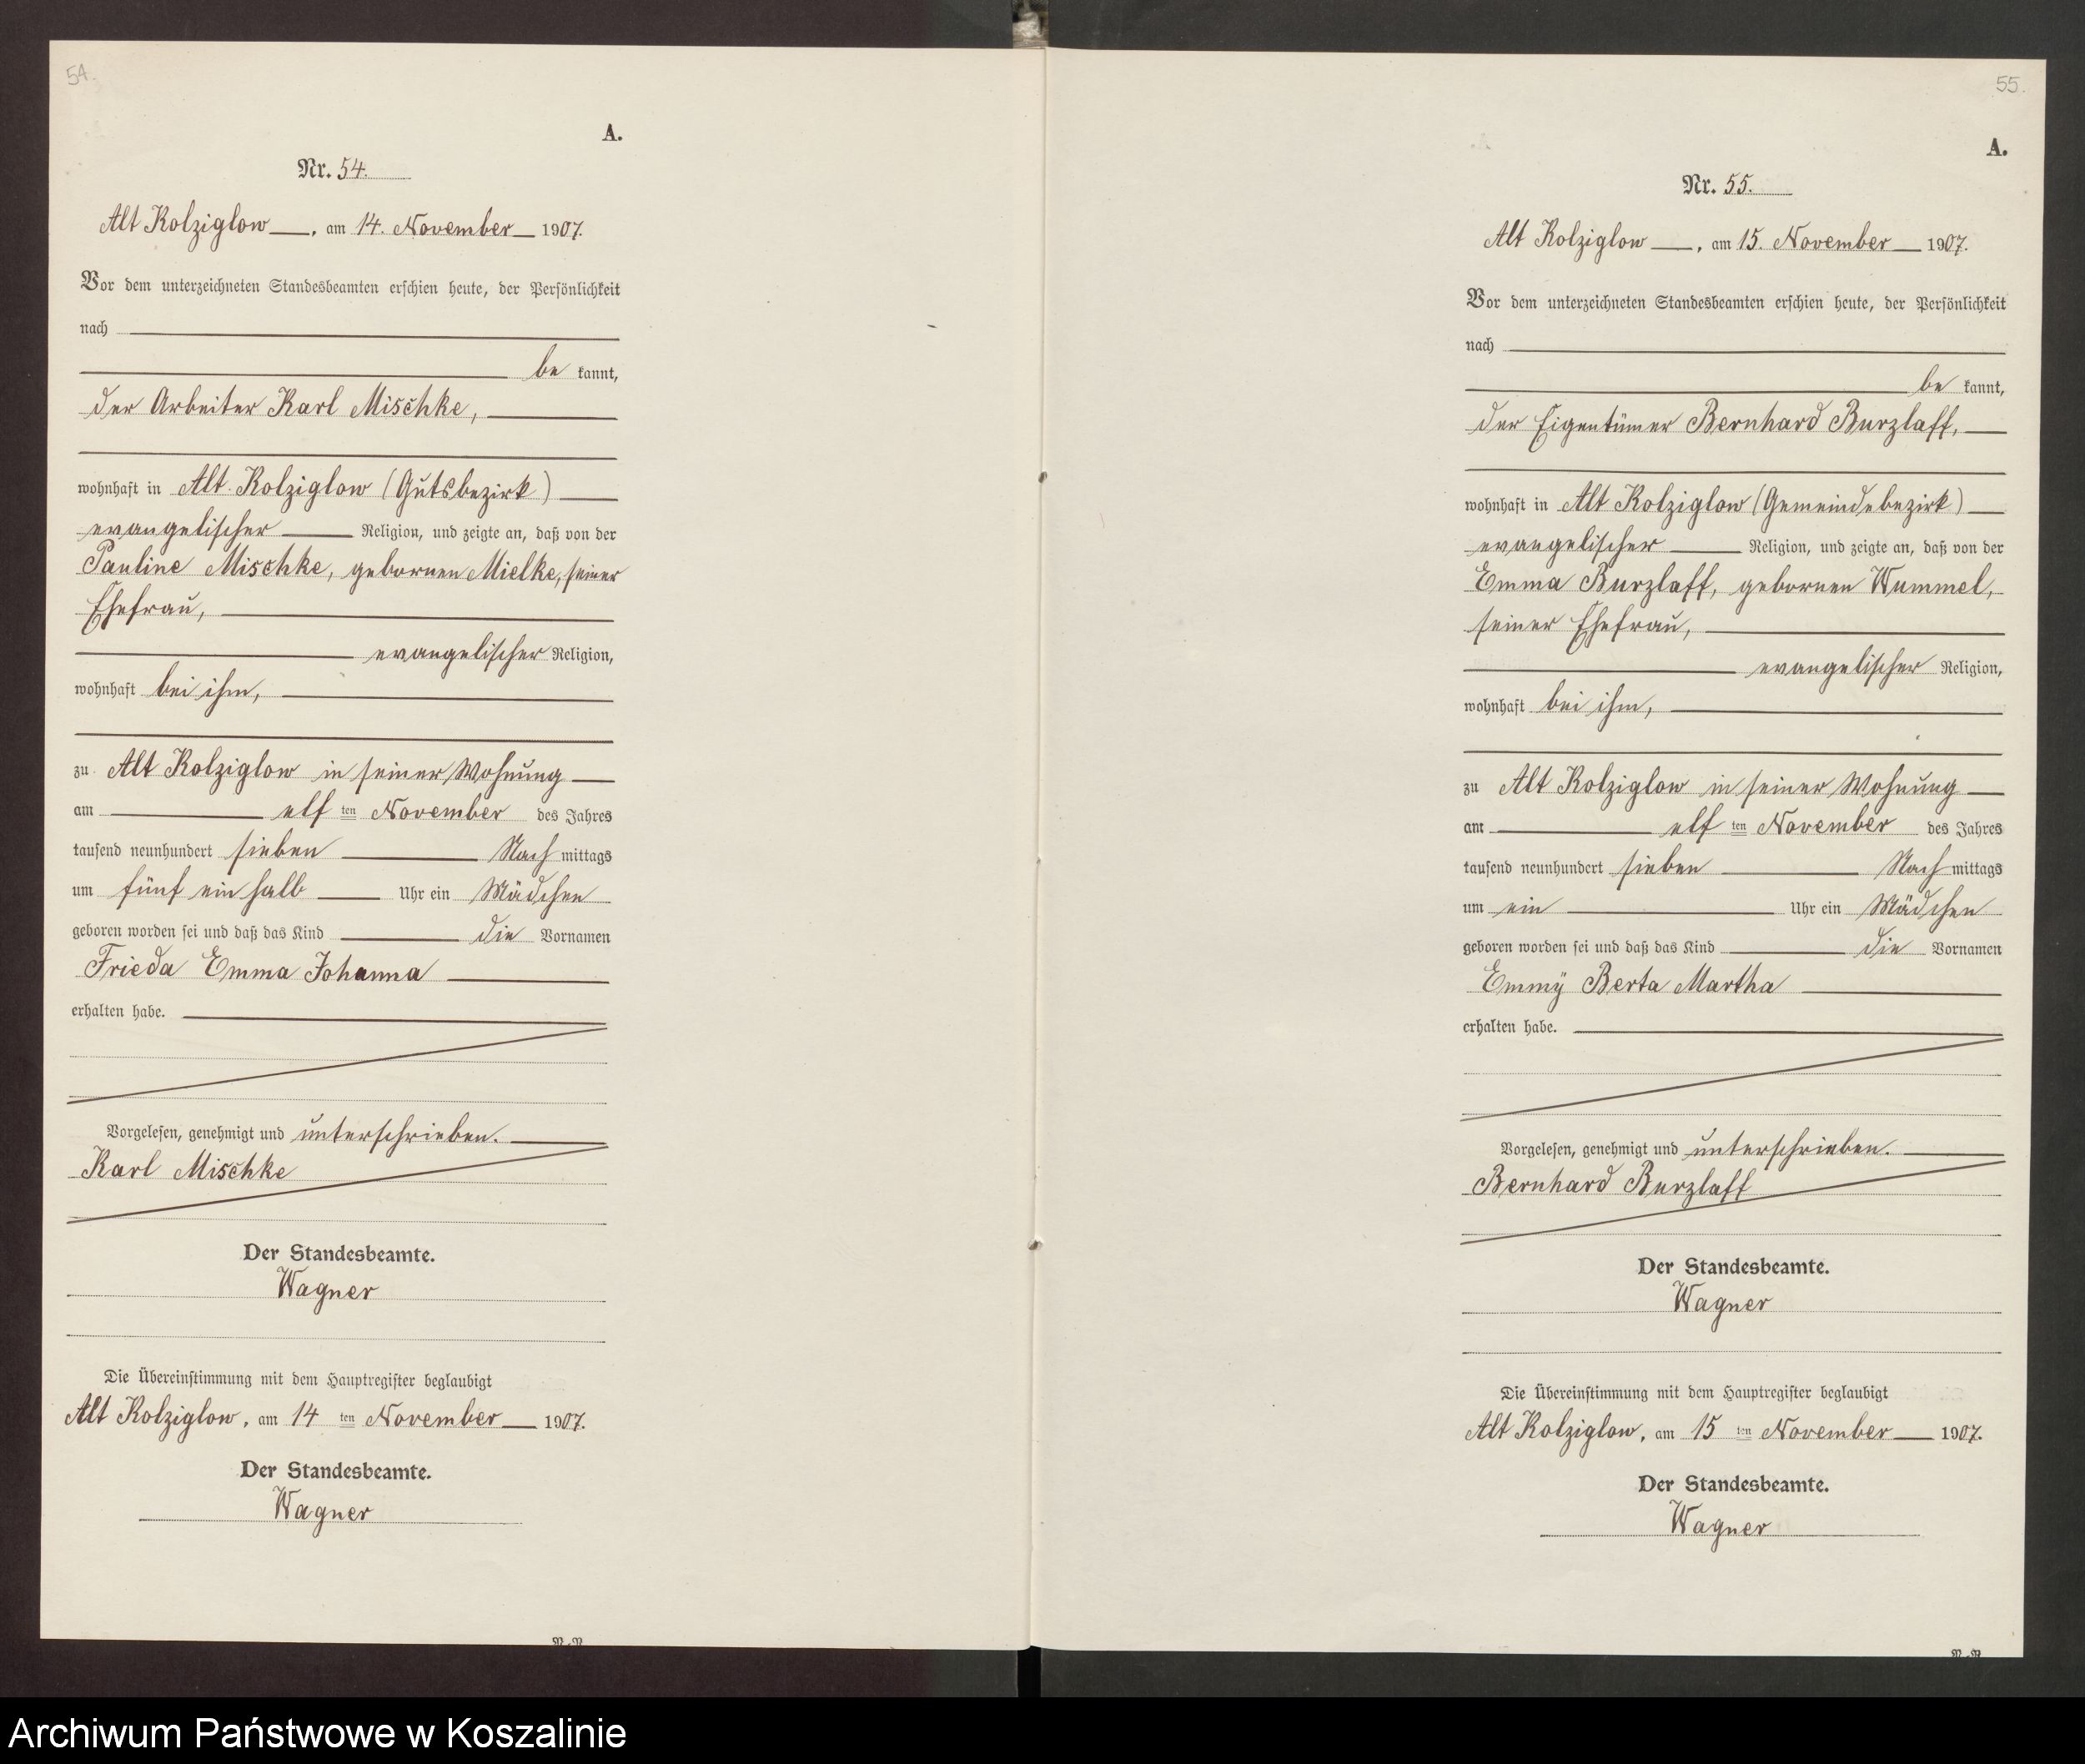 54.
A.
Nr. 54.
Alt Kolziglow, am 14. November 1907.
Vor dem unterzeichneten Standesbeamten erschien heute, der Persönlichkeit
nach
be kannt,
der Arbeiter Karl Mischke,
wohnhaft in Alt Kolziglow (Gutsbezirk)
evangelischer Religion, und zeigte an, daß von der
Pauline Mischke, gebornen Mielke, seiner
Ehefrau,
evangelischer Religion,
wohnhaft bei ihm,
zu Alt Kolziglow in seiner Wohnung
am elf ten November des Jahres
tausend neunhundert sieben Nach mittags
um fünf ein halb Uhr ein Mädchen
geboren worden sei und daß das Kind die Vornamen
Frieda Emma Johanna
erhalten habe.
Vorgelesen, genehmigt und unterschrieben.
Karl Mischke
Der Standesbeamte.
Wagner
Die Übereinstimmung mit dem Hauptregister beglaubigt
Alt Kolziglow, am 14 ten November 1907.
Der Standesbeamte.
Wagner
55.
A.
Nr. 55.
Alt Kolziglow, am 15. November 1907.
Vor dem unterzeichneten Standesbeamten erschien heute, der Persönlichkeit
nach
be kannt,
der Eigentümer Bernhard Burzlaff,
wohnhaft in Alt Kolziglow (Gemeindebezirk)
evangelischer Religion, und zeigte an, daß von der
Emma Burzlaff, gebornen Wummel,
seiner Ehefrau,
evangelischer Religion,
wohnhaft bei ihm,
zu Alt Kolziglow in seiner Wohnung
am elf ten November des Jahres
tausend neunhundert sieben Nach mittags
um ein Uhr ein Mädchen
geboren worden sei und daß das Kind die Vornamen
Emmÿ Berta Martha
erhalten habe.
Vorgelesen, genehmigt und unterschrieben.
Bernhard Burzlaff
Der Standesbeamte.
Wagner
Die Übereinstimmung mit dem Hauptregister beglaubigt
Alt Kolziglow, am 15 ten November 1907.
Der Standesbeamte.
Wagner
Archiwum Państwowe w Koszalinie